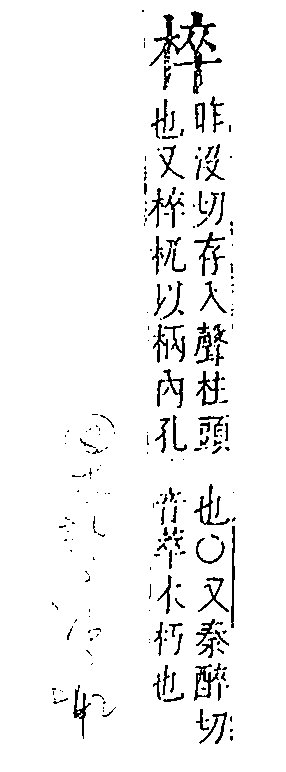 椊
昨沒切存入聲柱頭
也又椊杌以柄內孔
也〇又秦醉切
音萃木朽也